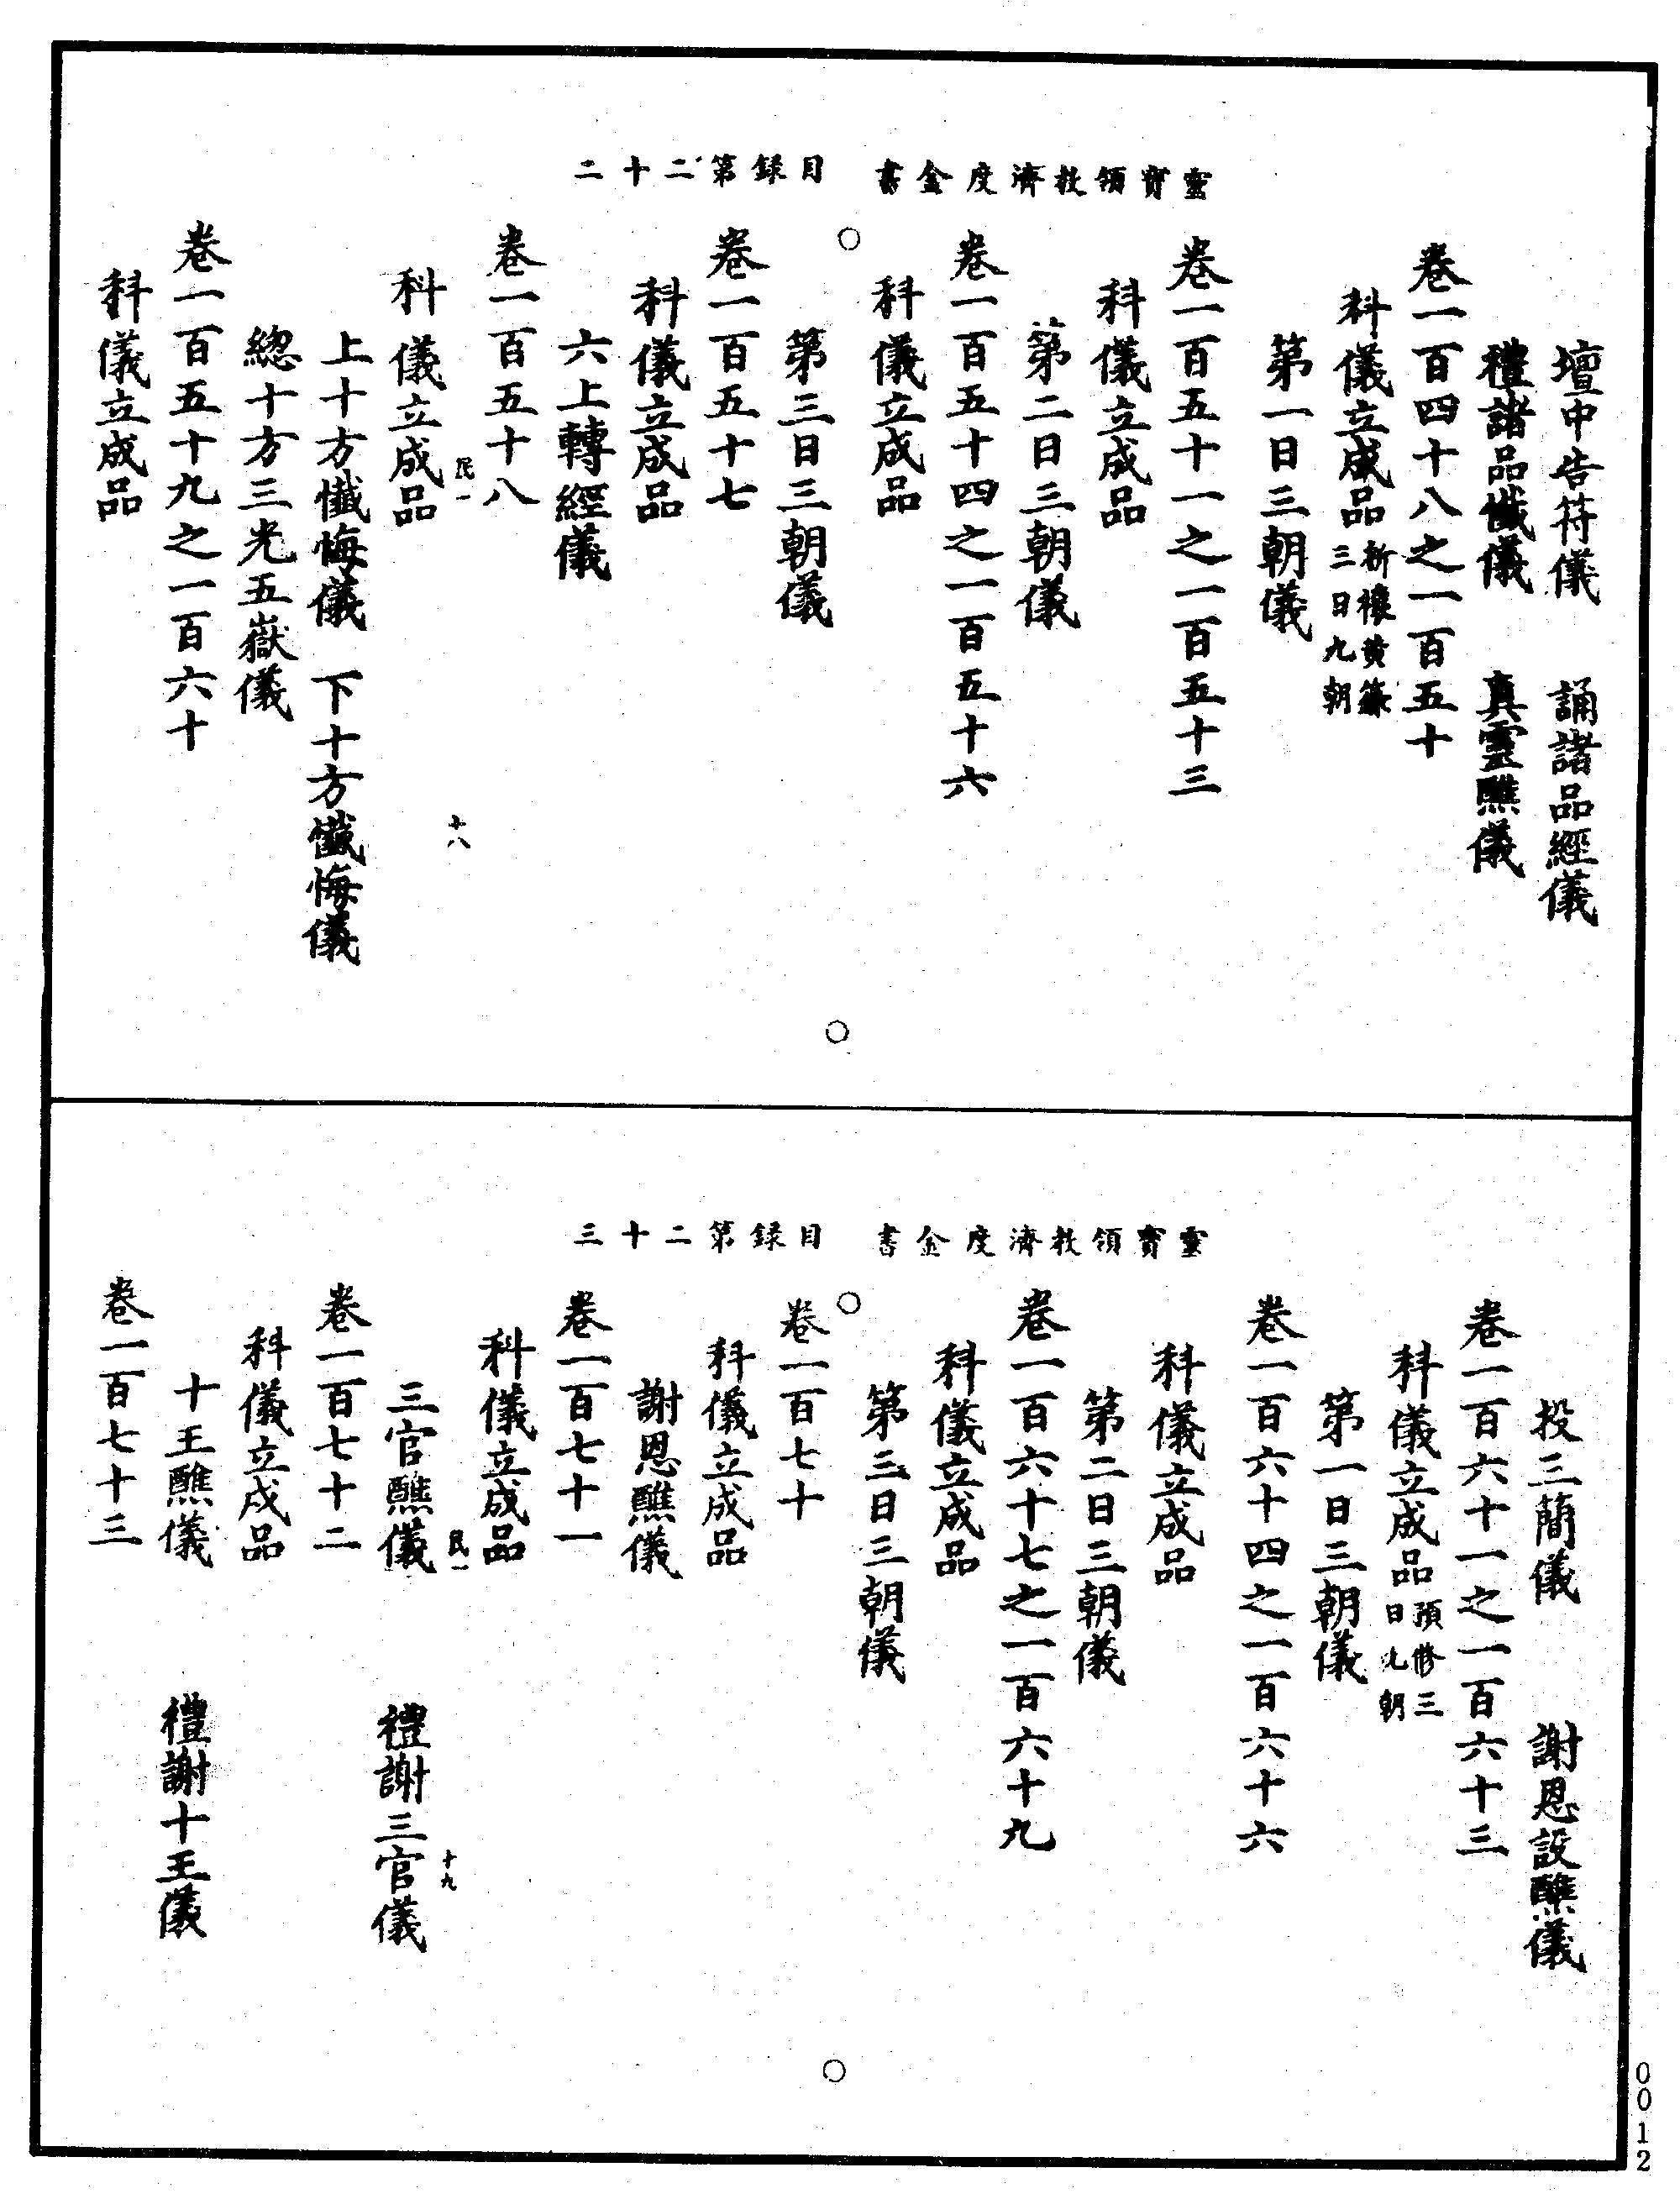 靈寶領教濟度金書　目録第二十二
壇中告符儀　誦諸品經儀
禮諸品懺儀　真靈醮儀
卷一百四十八之一百五十
科儀立成品祈禳黄籙三日九朝
第一日三朝儀
卷一百五十一之一百五十三
科儀立成品
第二日三朝儀
卷一百五十四之一百五十六
科儀立成品
第三日三朝儀
卷一百五十七
科儀立成品
六上轉經儀
卷一百五十八
民一　十八
科儀立成品
上十方懺悔儀　下十方懺悔儀
總十方三光五嶽儀
卷一百五十九之一百六十
科儀立成品
靈寶領教濟度金書　目録第二十三
投三簡儀　謝恩設醮儀
卷一百六十一之一百六十三
科儀立成品預修三日九朝
第一日三朝儀
卷一百六十四之一百六十六
科儀立成品
第二日三朝儀
卷一百六十七之一百六十九
科儀立成品
第三日三朝儀
卷一百七十
科儀立成品
謝恩醮儀
卷一百七十一
科儀立成品
民一　十九
三官醮儀　禮謝三官儀
卷一百七十二
科儀立成品
十王醮儀　禮謝十王儀
卷一百七十三
0012